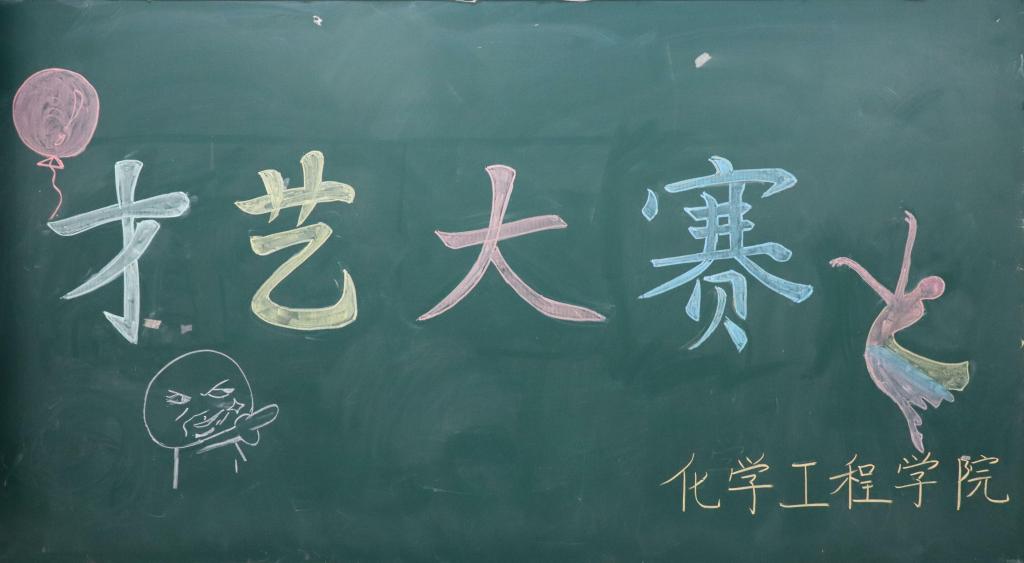 才艺大赛
化学工程学院